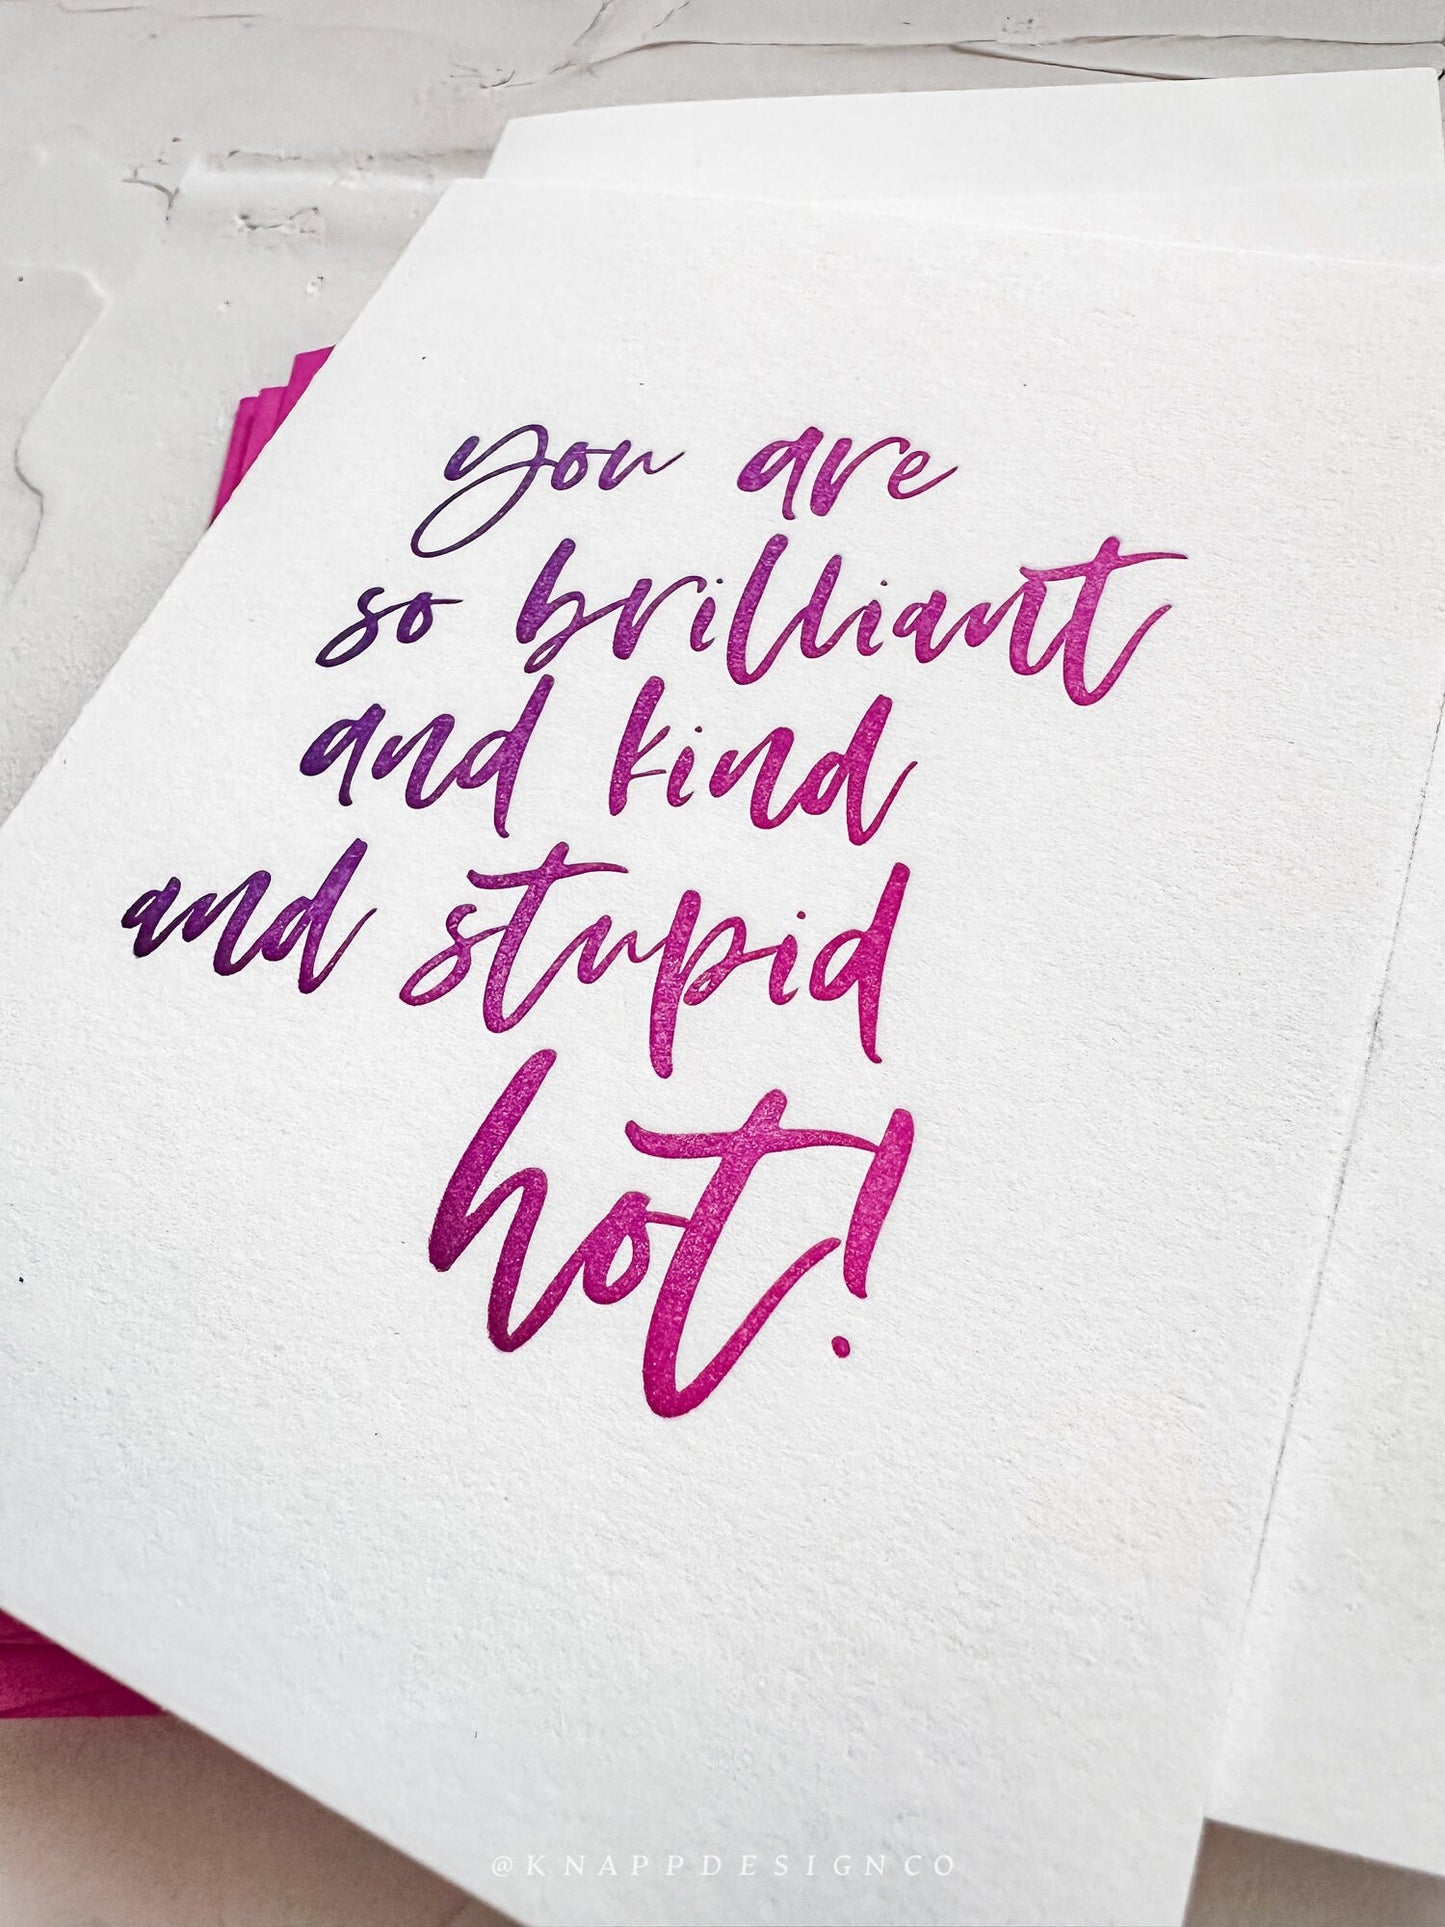 you are
so brilliant
and kind
and stupid
hot!
@KNAPPDESIGNCO